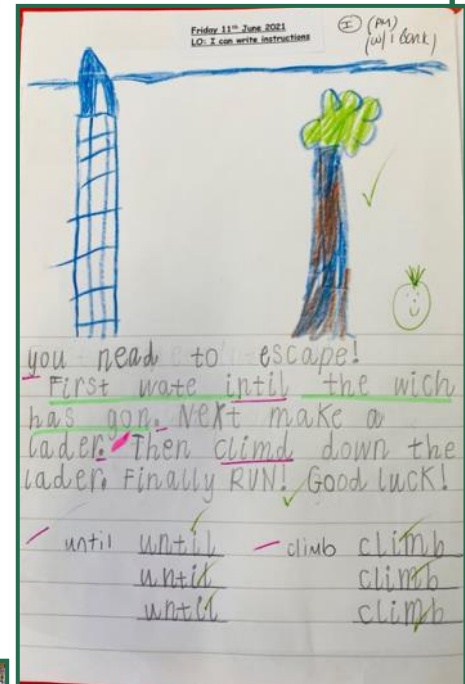 Friday 11th June 2021
LO: I can write instructions
I (PM)
(w/i bank)
you nead to escape!
First wate intil the wich
has gon. Next make a
lader. Then climd down the
lader. Finally RUN! Good luck!
until until climb climb
until climb
until climb